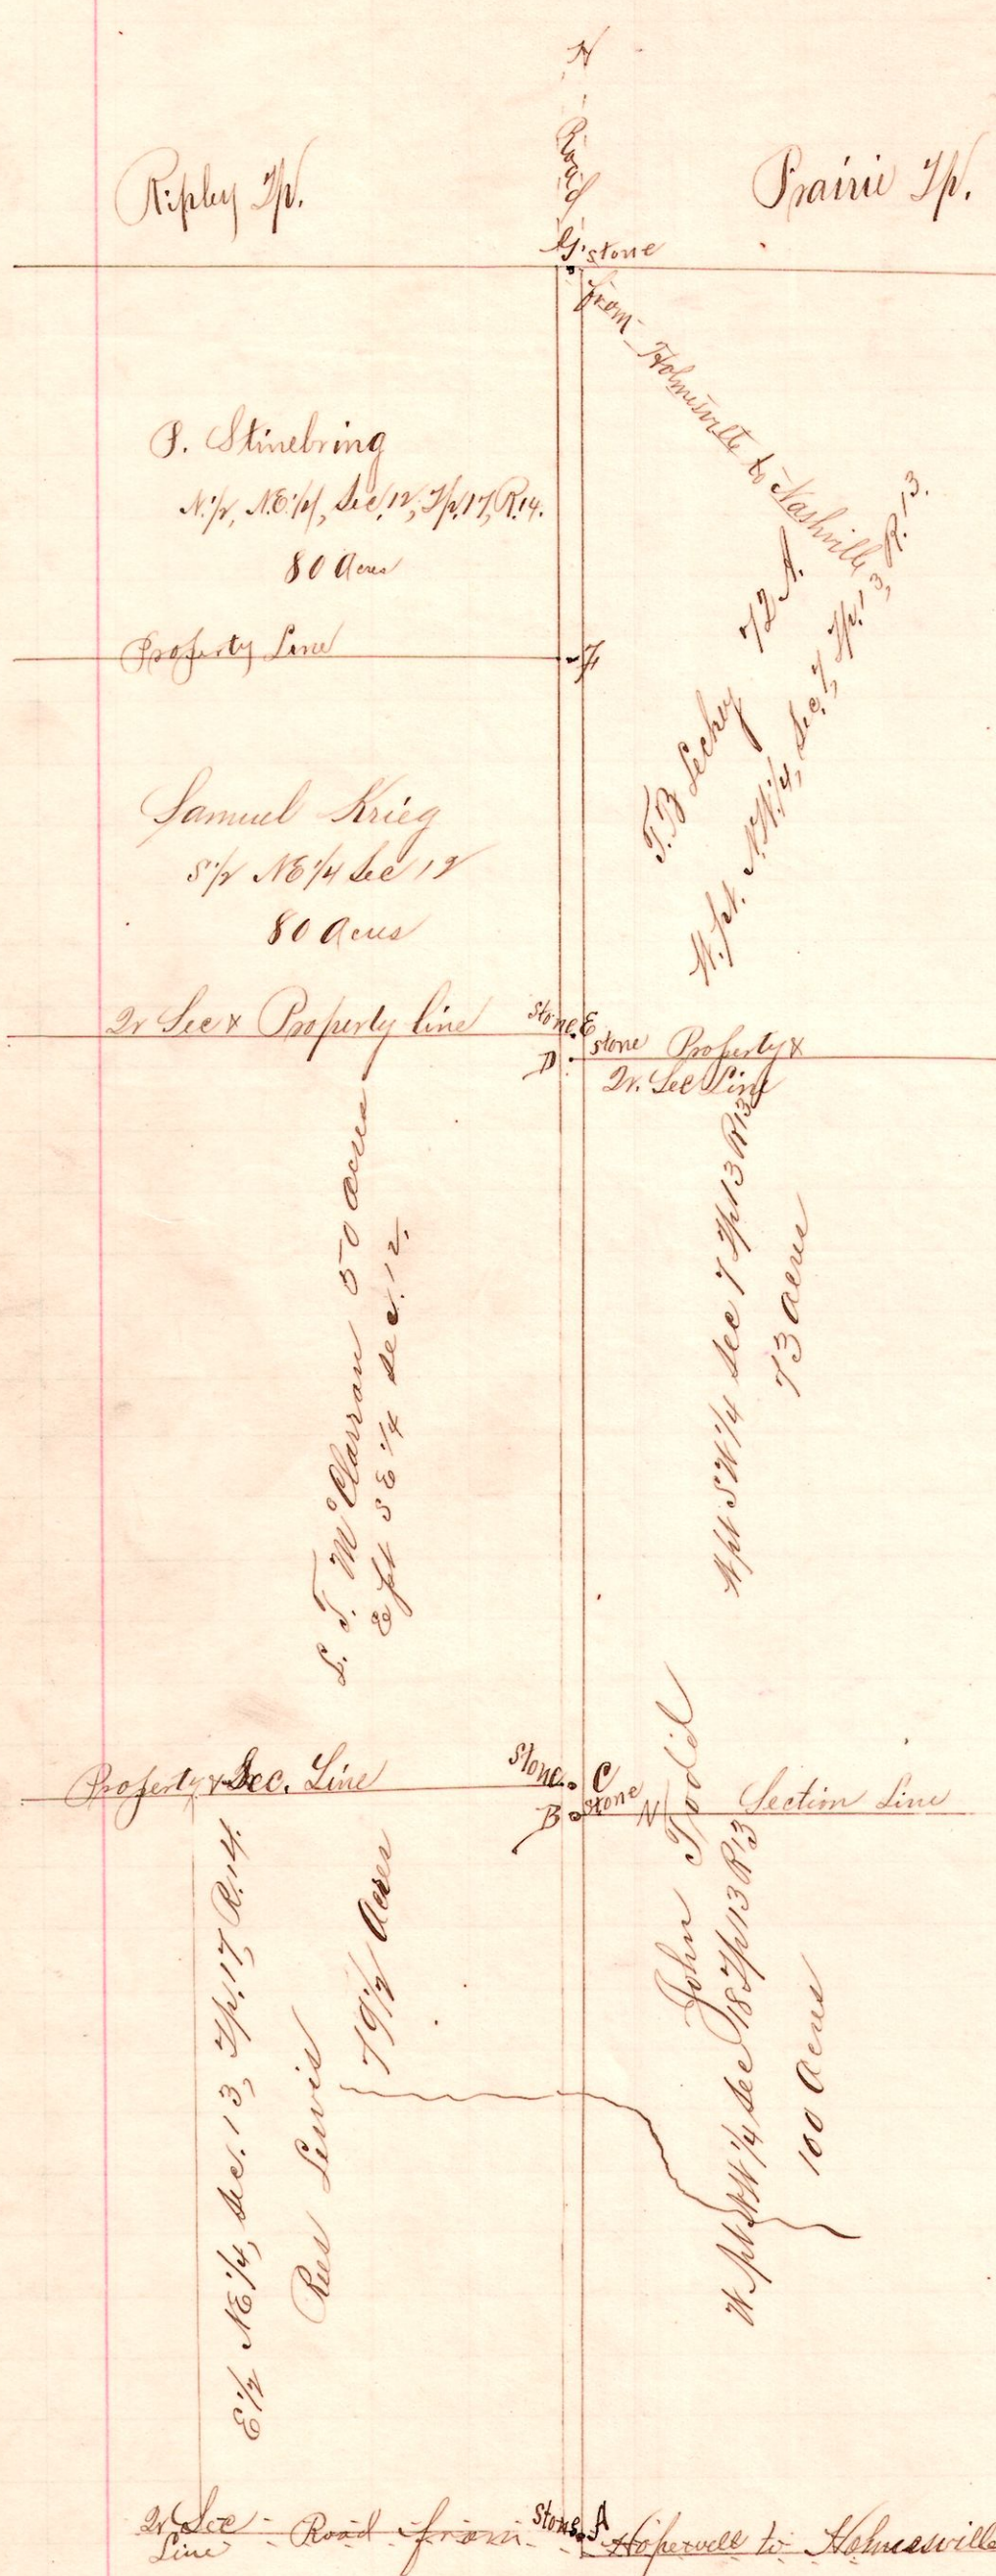 N
Road
Ripley Tp.
Prairie Tp.
G. stone
from Holmesville to Nashville
S. Stinebring
N.½, N.E.¼, Sec. 12, Tp. 17, R. 14.
80 Acres
Property Line
F
T. B. Lechey 72 A.
W. pt. N.W.¼, Sec. 7, Tp. 13, R. 13.
Samuel Krieg
S½ NE¼ Sec 12
80 Acres
Qr Sec & Property line
Stone E
D
stone Property &
Qr. Sec Line
L. T. McClarran 50 Acres
E pt S E ¼ Sec. 12.
W pt SW¼ Sec 7 Tp 13 R 13
73 Acres
Property & Sec. Line
Stone C
B stone N
Section Line
John Todd
W pt NW ¼ Sec 18 Tp 13 R 13
100 Acres
E½ NE¼, Sec. 13, Tp. 17, R. 14.
Rees Lewis
79½ Acres
Qr Sec
Line
Road from
Stone A
Hopewell to Holmesville